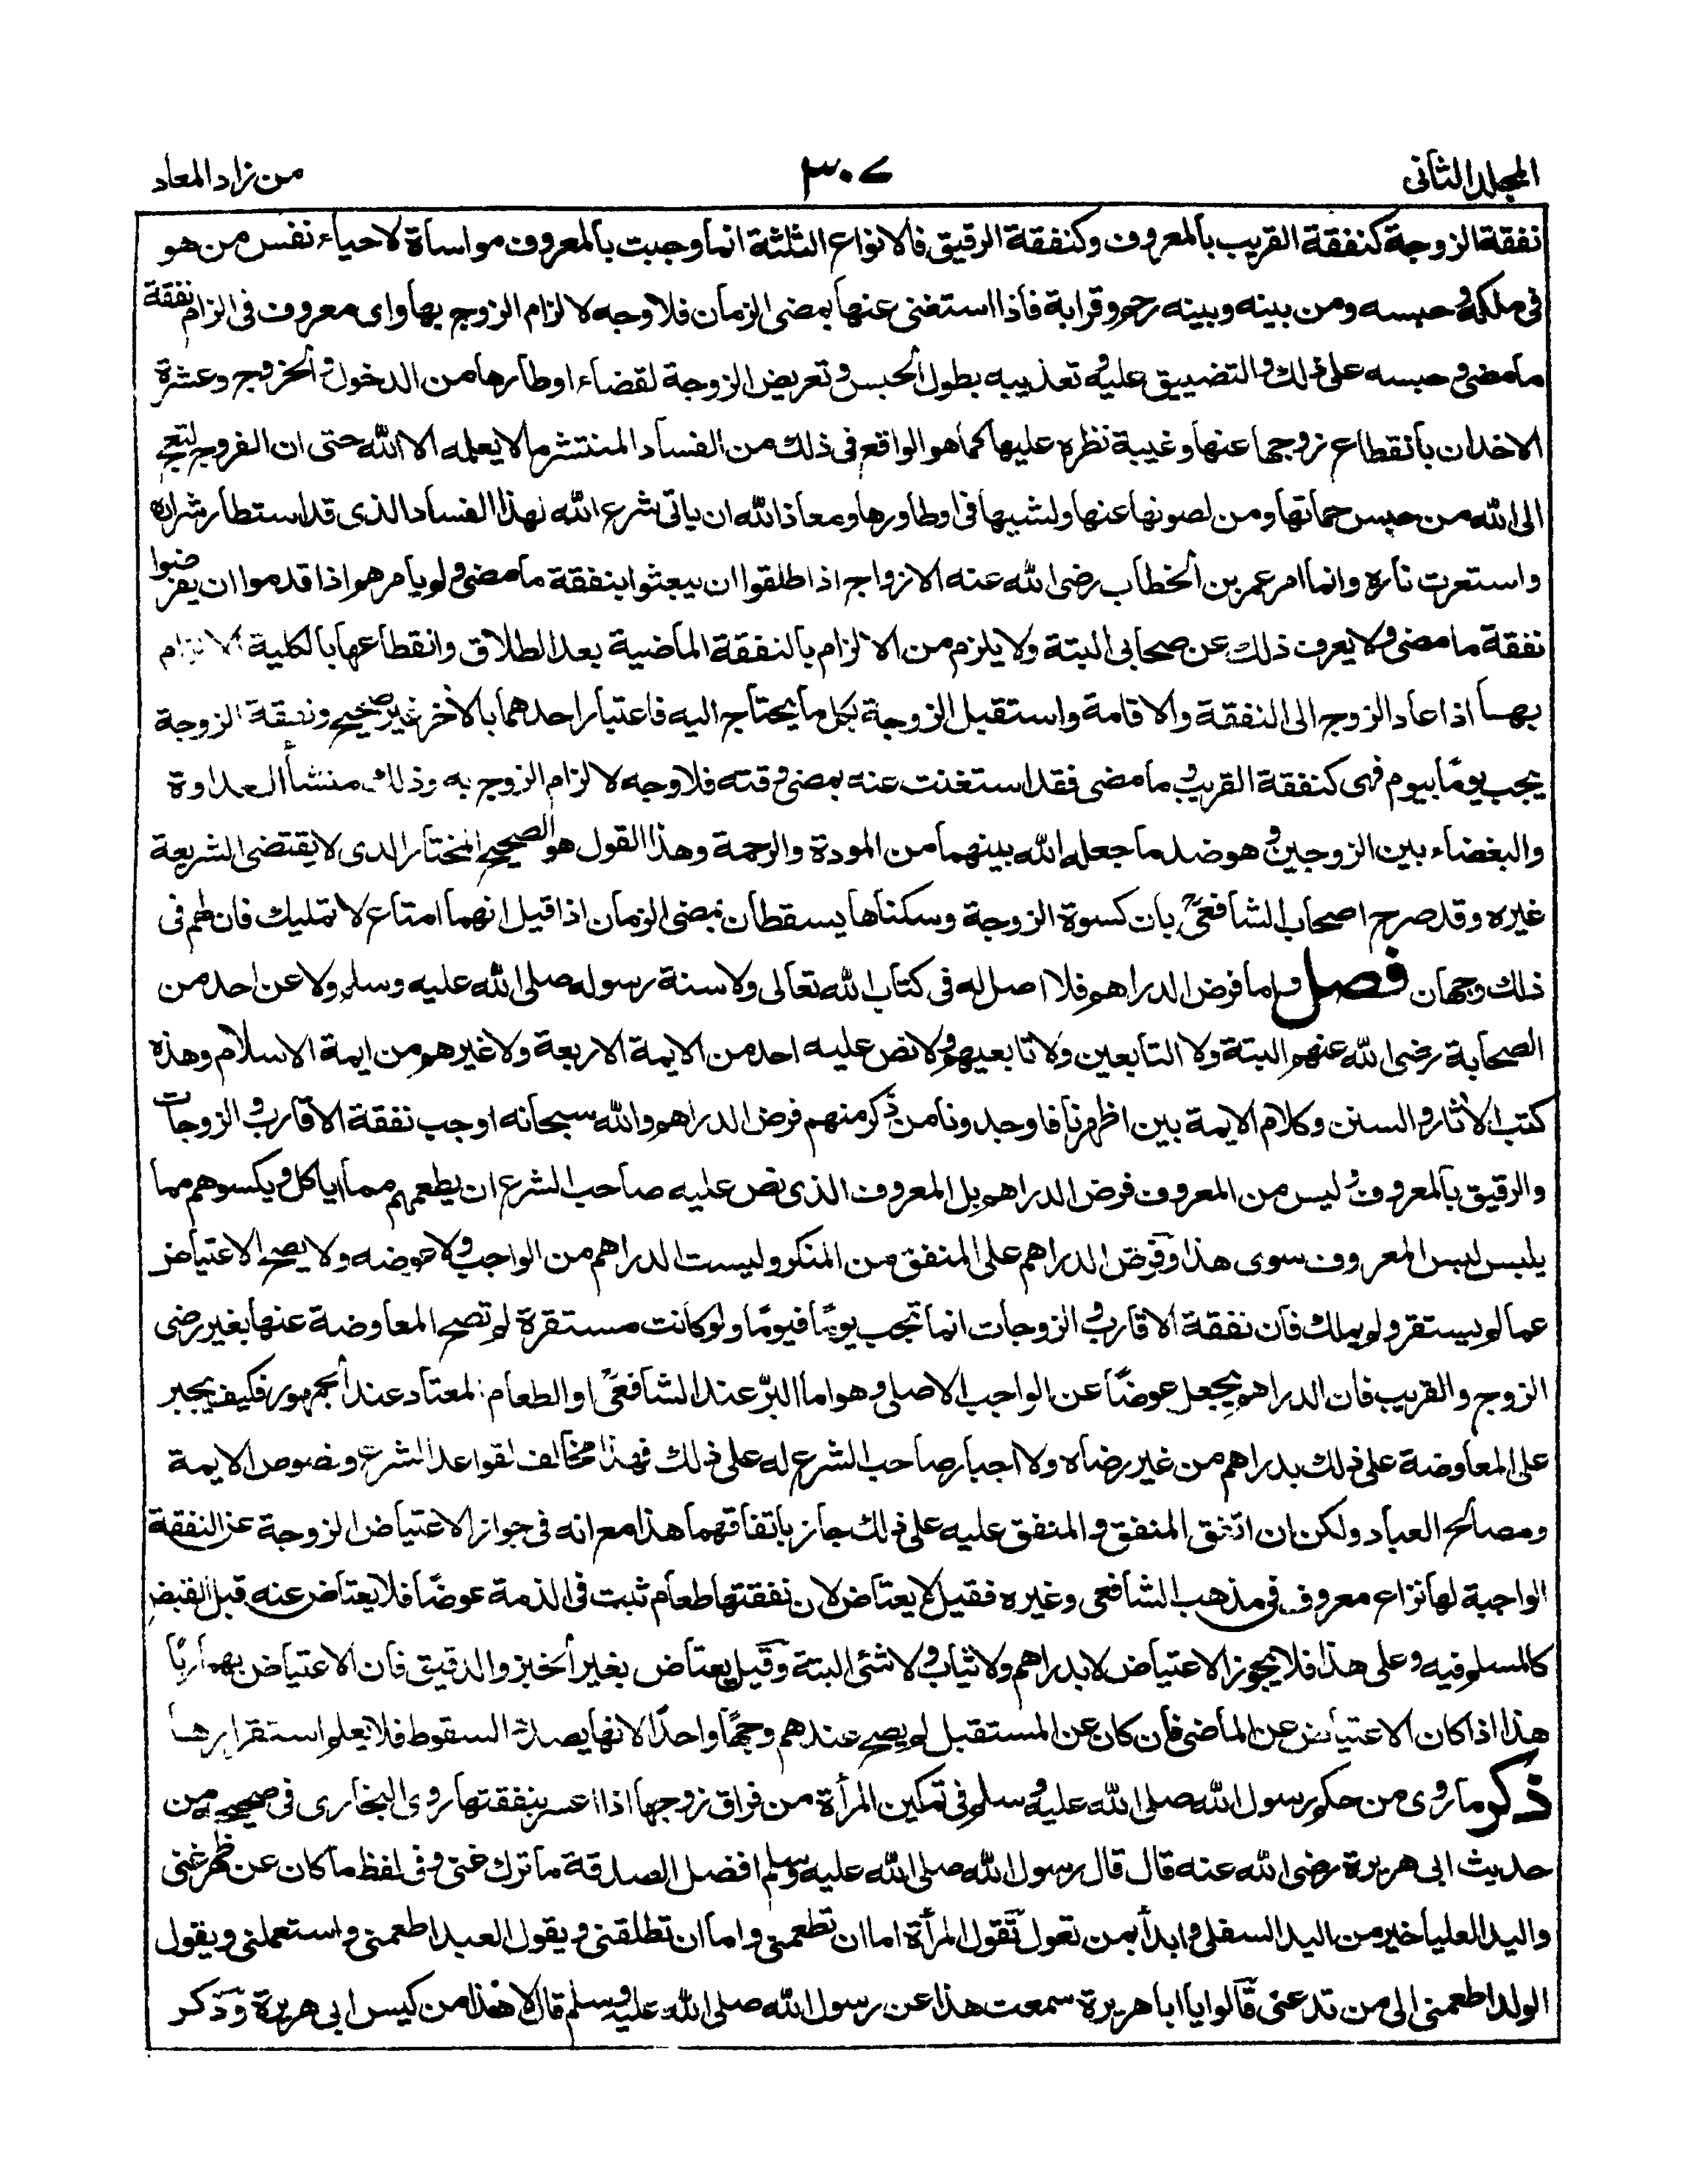 المجلد الثانى
٣٠٧
من زاد المعاد
نفقة الزوجة كنفقة القريب بالمعروف وكنفقة الرقيق فالانواع الثلثة انما وجبت بالمعروف مواساة لاحياء نفس من هو
فى ملكه وحبسه ومن بينه وبينه رحم وقرابة فاذا استغنى عنها بمضى الزمان فلا وجه لالزام الزوج بها واى معروف فى الزام نفقة
ما مضى وحبسه على ذلك والتضييق عليه وتعذيبه بطول الحبس وتعريض الزوجة لقضاء اوطارها من الدخول والخروج وعشرة
الاخدان بانقطاع زوجها عنها وغيبة نظره عليها كما هو الواقع فى ذلك من الفساد المنتشر ما لا يعلمه الا الله حتى ان الفروج لتعج
الى الله من حبس حماتها ومن لصونها عنها ولشبها فى اوطاورها ومعاذ الله ان ياتى شرع الله لهذا الفساد الذى قد استطار شراره
واستعرت ناره وانما امر عمر بن الخطاب رضى الله عنه الازواج اذا طلقوا ان يبعثوا بنفقة ما مضى ولو يامرهم اذا قدموا ان يفرضوا
نفقة ما مضى ولا يعرف ذلك عن صحابى البتة ولا يلزم من الالزام بالنفقة الماضية بعد الطلاق وانقطاعها بالكلية الالزام
بها اذا عاد الزوج الى النفقة والاقامة واستقبل الزوجة بكل ما يحتاج اليه فاعتبار احدهما بالاخر غير صحيح ونفقة الزوجة
يجب يومًا بيوم فهى كنفقة القريب وما مضى فقد استغنت عنه بمضى وقته فلا وجه لالزام الزوج به وذلك منشأ العداوة
والبغضاء بين الزوجين وهو ضد ما جعله الله بينهما من المودة والرحمة وهذا القول هو الصحيح المختار الذى لا يقتضى الشريعة
غيره وقد صرح اصحاب الشافعىؒ بان كسوة الزوجة وسكناها يسقطان بمضى الزمان اذا قيل انهما امتاع لا تمليك فان لهم فى
ذلك وجهان فصل واما فرض الدراهم فلا اصل له فى كتاب الله تعالى ولا سنة رسوله صلى الله عليه وسلم ولا عن احد من
الصحابة رضى الله عنهم البتة ولا التابعين ولا تابعيهم ولا نص عليه احد من الايمة الاربعة ولا غيرهم من ايمة الاسلام وهذه
كتب الاثار والسنن وكلام الايمة بين اظهرنا فاوجدونا من ذكر منهم فرض الدراهم والله سبحانه اوجب نفقة الاقارب والزوجات
والرقيق بالمعروف وليس من المعروف فرض الدراهم بل المعروف الذى نص عليه صاحب الشرع ان يطعمهم مما ياكل ويكسوهم مما
يلبس ليس المعروف سوى هذا وفرض الدراهم على المنفق من المنكر وليست الدراهم من الواجب ولا عوضه ولا يصح الاعتياض
عما لو يستقر ولو يملك فان نفقة الاقارب والزوجات انما تجب يومًا فيومًا ولو كانت مستقرة لم تصح المعاوضة عنها بغير رضى
الزوج والقريب فان الدراهم يجعل عوضًا عن الواجب الاصلى وهو اما البرّ عند الشافعىؒ او الطعام المعتاد عند الجمهور فكيف يجبر
على المعاوضة على ذلك بدراهم من غير رضاه ولا اجبار صاحب الشرع له على ذلك فهذا مخالف لقواعد الشرع ونصوص الايمة
ومصالح العباد ولكن ان اتفق المنفق والمنفق عليه على ذلك جاز باتفاقهما هذا مع انه فى جواز الاعتياض الزوجة عن النفقة
الواجبة لها نزاع معروف فى مذهب الشافعى وغيره فقيل لا يعتاض لان نفقتها طعام ثبت فى الذمة عوضًا فلا يعتاض عنه قبل القبض
كالمسلم فيه وعلى هذا فلا يجوز الاعتياض لا بدراهم ولا ثياب ولا شئى البتة وقيل يعتاض بغير الخبز والدقيق فان الاعتياض بهما ربًا
هذا اذا كان الاعتياض عن الماضى فان كان عن المستقبل لم يصح عندهم وجهًا واحدًا لانها بصدد السقوط فلا يعلم استقرارها
ذكر ما روى من حكم رسول الله صلى الله عليه وسلم فى تمكين المرأة من فراق زوجها اذا اعسر بنفقتها روى البخارى فى صحيحه من
حديث ابى هريرة رضى الله عنه قال قال رسول الله صلى الله عليه وسلم افضل الصدقة ما ترك غنى وفى لفظ ما كان عن ظهر غنى
واليد العليا خير من اليد السفلى وابدأ بمن تعول تقول المرأة اما ان تطعمنى واما ان تطلقنى ويقول العبد اطعمنى واستعملنى ويقول
الولد اطعمنى الى من تدعنى قالوا يا ابا هريرة سمعت هذا عن رسول الله صلى الله عليه وسلم قال لا هذا من كيس ابى هريرة وذكر